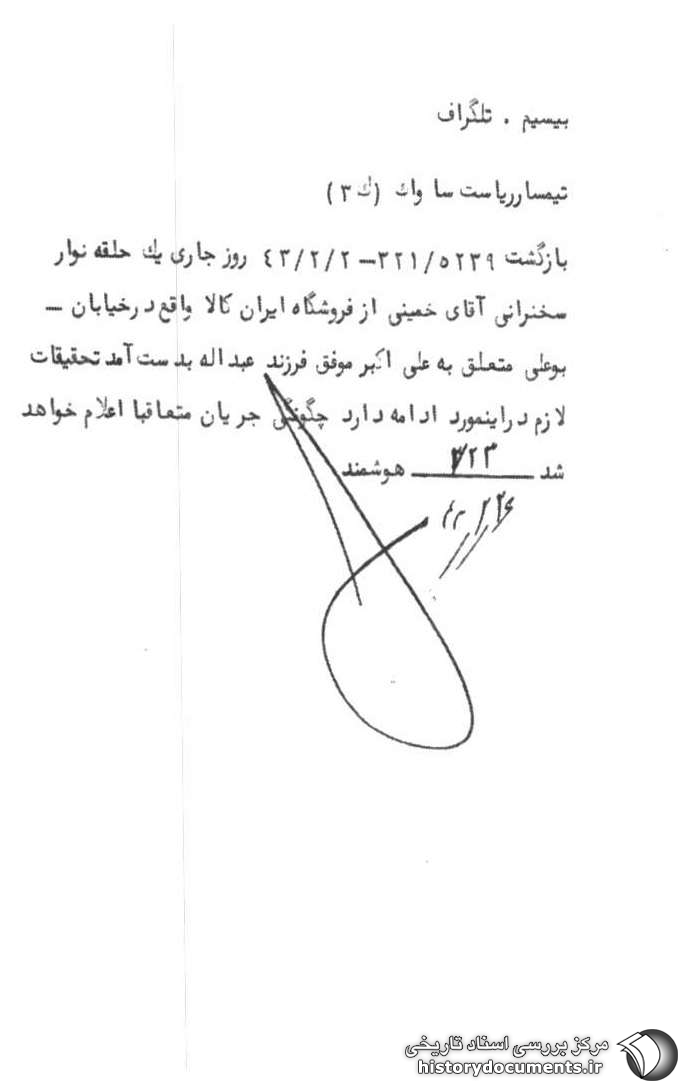 بیسیم . تلگراف
تیمسارریاست سا واك (ك ۳)
بازگشت ۳۲۱/۵۲۳۹–۴۳/۲/۲ روز جاری یك حلقه نوار
سخنرانی آقای خمینی از فروشگاه ایران کالا واقع درخیابان –
بوعلی متعلق به علی اکبر موفق فرزند عبداله بدست آمد تحقیقات
لازم دراینمورد ادامه دارد چگونگی جریان متعاقبا اعلام خواهد
شد ۳۲۳ هوشمند
مرکز بررسی اسناد تاریخی
historydocuments.ir